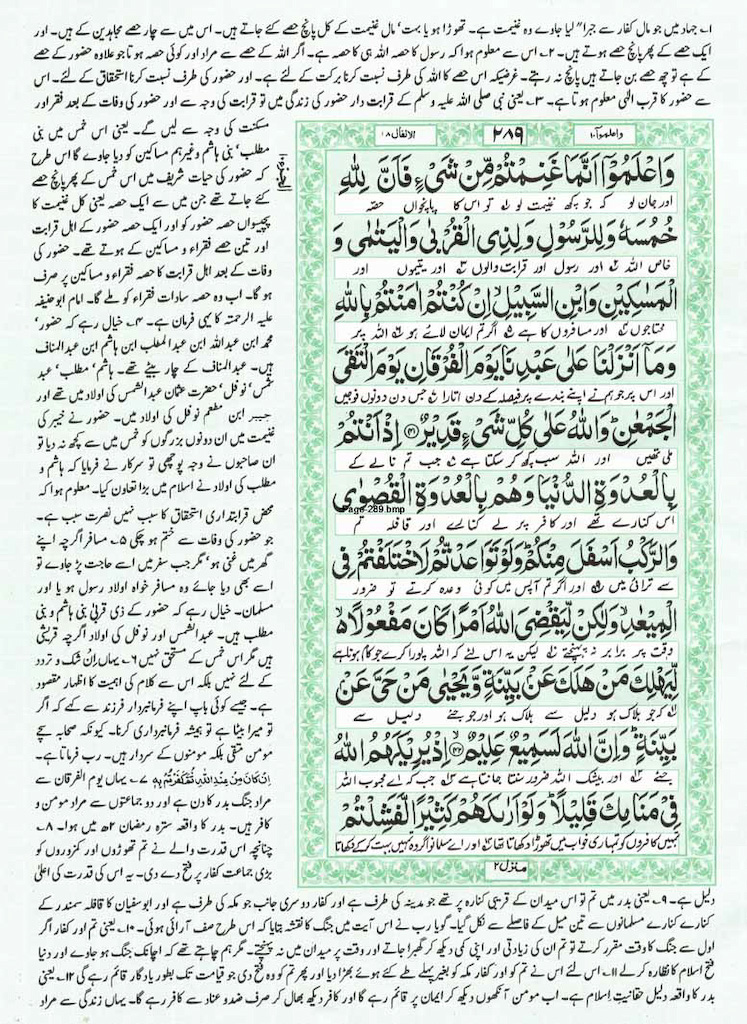 ۱۔ جہاد میں جو مال کفار سے جبراً لیا جاوے وہ غنیمت ہے۔ تھوڑا ہو یا بہت، مال غنیمت کے کل پانچ حصے کئے جاتے ہیں۔ اس میں سے چار حصے مجاہدین کے ہیں۔ اور
ایک حصے کے پھر پانچ حصے ہوتے ہیں۔ ۲۔ اس سے معلوم ہوا کہ رسول کا حصہ اللہ ہی کا حصہ ہے۔ اگر اللہ کے حصے سے مراد اور کوئی حصہ ہوتا جو علاوہ حضور کے حصے
کے ہے تو چھ حصے بن جاتے ہیں پانچ نہ رہتے۔ غرضیکہ اس حصے کا اللہ کی طرف نسبت کرنا برکت کے لئے ہے۔ اور حضور کی طرف نسبت کرنا استحقاق کے لئے۔ اس
سے حضور کا قرب الٰہی معلوم ہوتا ہے۔ ۳۔ یعنی نبی صلی اللہ علیہ وسلم کے قرابت دار حضور کی زندگی میں تو قرابت کی وجہ سے اور حضور کی وفات کے بعد فقر اور
واعلموآ۱۰
۲۸۹
الانفال۸
وَاعْلَمُوْٓا اَنَّمَا غَنِمْتُمْ مِّنْ شَیْءٍ فَاَنَّ لِلّٰهِ
اور جان لو کہ جو کچھ غنیمت لو تو اس کا پانچواں حصہ
خُمُسَهٗ وَلِلرَّسُوْلِ وَلِذِی الْقُرْبٰی وَالْیَتٰمٰی وَ
خاص اللہ اور رسول اور قرابت والوں اور یتیموں اور
الْمَسٰكِیْنِ وَابْنِ السَّبِیْلِ اِنْ كُنْتُمْ اٰمَنْتُمْ بِاللّٰهِ
محتاجوں اور مسافروں کا ہے اگر تم ایمان لائے ہو اللہ پر
وَمَآ اَنْزَلْنَا عَلٰی عَبْدِنَا یَوْمَ الْفُرْقَانِ یَوْمَ الْتَقَی
اور اس پر جو ہم نے اپنے بندے پر فیصلہ کے دن اتارا جس دن دونوں فوجیں
الْجَمْعٰنِ وَاللّٰهُ عَلٰی كُلِّ شَیْءٍ قَدِیْرٌ ﴿۴۱﴾ اِذْ اَنْتُمْ
ملی تھیں اور اللہ سب کچھ کر سکتا ہے جب تم نالے کے
بِالْعُدْوَةِ الدُّنْیَا وَهُمْ بِالْعُدْوَةِ الْقُصْوٰی
Page-289.bmp
اس کنارے تھے اور کافر پرلے کنارے اور قافلہ تم
وَالرَّكْبُ اَسْفَلَ مِنْكُمْ وَلَوْ تَوَاعَدْتُّمْ لَاخْتَلَفْتُمْ فِی
سے ترائی میں اور اگر تم آپس میں کوئی وعدہ کرتے تو ضرور
الْمِیْعٰدِ وَلٰكِنْ لِّیَقْضِیَ اللّٰهُ اَمْرًا كَانَ مَفْعُوْلًا
وقت پر برابر نہ پہنچتے لیکن یہ اس لئے کہ اللہ پورا کرے جو کام ہونا ہے
لِّیَهْلِكَ مَنْ هَلَكَ عَنْۢ بَیِّنَةٍ وَّیَحْیٰی مَنْ حَیَّ عَنْۢ
کہ جو ہلاک ہو دلیل سے ہلاک ہو اور جو جئے دلیل سے
بَیِّنَةٍ وَاِنَّ اللّٰهَ لَسَمِیْعٌ عَلِیْمٌ ﴿۴۲﴾ اِذْ یُرِیْكَهُمُ اللّٰهُ
جئے اور بیشک اللہ ضرور سنتا جانتا ہے جب کہ اے محبوب اللہ
فِیْ مَنَامِكَ قَلِیْلًا وَلَوْ اَرٰىكَهُمْ كَثِیْرًا لَّفَشِلْتُمْ
تمہیں کافروں کو تمہاری خواب میں تھوڑا دکھاتا تھا اور اے مسلمانو اگر وہ تمہیں بہت کر کے دکھاتا
منزل۲
مسکنت کی وجہ سے لیں گے۔ یعنی اس خمس میں بنی
مطلب، بنی ہاشم وغیرہم مساکین کو دیا جاوے گا اس طرح
کہ حضور کی حیات شریف میں اس خمس کے پھر پانچ حصے
کئے جاتے تھے جن میں سے ایک حصہ یعنی کل غنیمت کا
پچیسواں حصہ حضور کو اور ایک حصہ حضور کے اہل قرابت
اور تین حصے فقراء و مساکین کے ہوتے تھے۔ حضور کی
وفات کے بعد اہل قرابت کا حصہ فقراء و مساکین پر صرف
ہو گا۔ اب وہ حصہ سادات فقراء کو ملے گا۔ امام ابو حنیفہ
علیہ الرحمتہ کا یہی فرمان ہے۔ ۴۔ خیال رہے کہ حضور،
محمد ابن عبداللہ ابن عبدالمطلب ابن ہاشم ابن عبدالمناف
ہیں۔ عبدالمناف کے چار بیٹے تھے۔ ہاشم، مطلب، عبد
شمس، نوفل، حضرت عثمان عبدالشمس کی اولاد میں تھے اور
جبیر ابن مطعم نوفل کی اولاد میں۔ حضور نے خیبر کی
غنیمت میں ان دونوں بزرگوں کو خمس میں سے کچھ نہ دیا تو
ان صاحبوں نے وجہ پوچھی تو سرکار نے فرمایا کہ ہاشم و
مطلب کی اولاد نے اسلام میں بڑا تعاون کیا۔ معلوم ہوا کہ
محض قرابتداری استحقاق کا سبب نہیں نصرت سبب ہے۔
جو حضور کی وفات سے ختم ہو چکی ۵۔ مسافر اگرچہ اپنے
گھر میں غنی ہو، مگر جب سفر میں اسے حاجت پڑ جاوے تو
اسے بھی دیا جائے وہ مسافر خواہ اولاد رسول ہو یا اور
مسلمان۔ خیال رہے کہ حضور کے ذی قربیٰ بنی ہاشم و بنی
مطلب ہیں۔ عبدالشمس اور نوفل کی اولاد اگرچہ قریشی
ہیں مگر اس خمس کے مستحق نہیں ۶۔ یہاں اِنْ شک و تردد
کے لئے نہیں بلکہ اس سے کلام کی اہمیت کا اظہار مقصود
ہے۔ جیسے کوئی باپ اپنے فرمانبردار فرزند سے کہے کہ اگر
تو میرا بیٹا ہے تو ہمیشہ فرمانبرداری کرنا۔ کیونکہ صحابہ سچے
مومن متقی بلکہ مومنوں کے سردار ہیں۔ رب فرماتا ہے۔
اِنْ كَانَ مِنْ عِنْدِ اللّٰهِ ثُمَّ كَفَرْتُمْ بِهٖ ۷۔ یہاں یوم الفرقان سے
مراد جنگ بدر کا دن ہے اور دو جماعتوں سے مراد مومن و
کافر ہیں۔ بدر کا واقعہ سترہ رمضان ۲ھ میں ہوا۔ ۸۔
چنانچہ اس قدرت والے نے تم تھوڑوں اور کمزوروں کو
بڑی جماعت کفار پر فتح دے دی۔ یہ اس کی قدرت کی اعلیٰ
دلیل ہے۔ ۹۔ یعنی بدر میں تم تو اس میدان کے قریبی کنارہ پر تھے جو مدینہ کی طرف ہے اور کفار دوسری جانب جو مکہ کی طرف ہے اور ابوسفیان کا قافلہ سمندر کے
کنارے کنارے مسلمانوں سے تین میل کے فاصلے سے نکل گیا۔ گویا رب نے اس آیت میں جنگ کا نقشہ بتایا کہ اس طرح صف آرائی ہوئی۔ ۱۰۔ یعنی تم اور کفار اگر
اول سے جنگ کا وقت مقرر کرتے تو تم ان کی زیادتی اور اپنی کمی دیکھ کر گھبرا جاتے اور وقت پر میدان میں نہ پہنچتے۔ مگر ہم چاہتے تھے کہ اچانک جنگ ہو جاوے اور دنیا
فتح اسلام کا نظارہ کر لے ۱۱۔ اس لئے اس نے تم کو اور کفار مکہ کو بغیر پہلے طے کئے ہوئے بھڑا دیا اور پھر تم کو وہ فتح دی جو قیامت تک بطور یادگار قائم رہے گی ۱۲۔ یعنی
بدر کا واقعہ دلیل حقانیت اسلام ہے۔ اب مومن آنکھوں دیکھ کر ایمان پر قائم رہے گا اور کافر دیکھ بھال کر صرف ضد و عناد سے کافر رہے گا۔ یہاں زندگی سے مراد